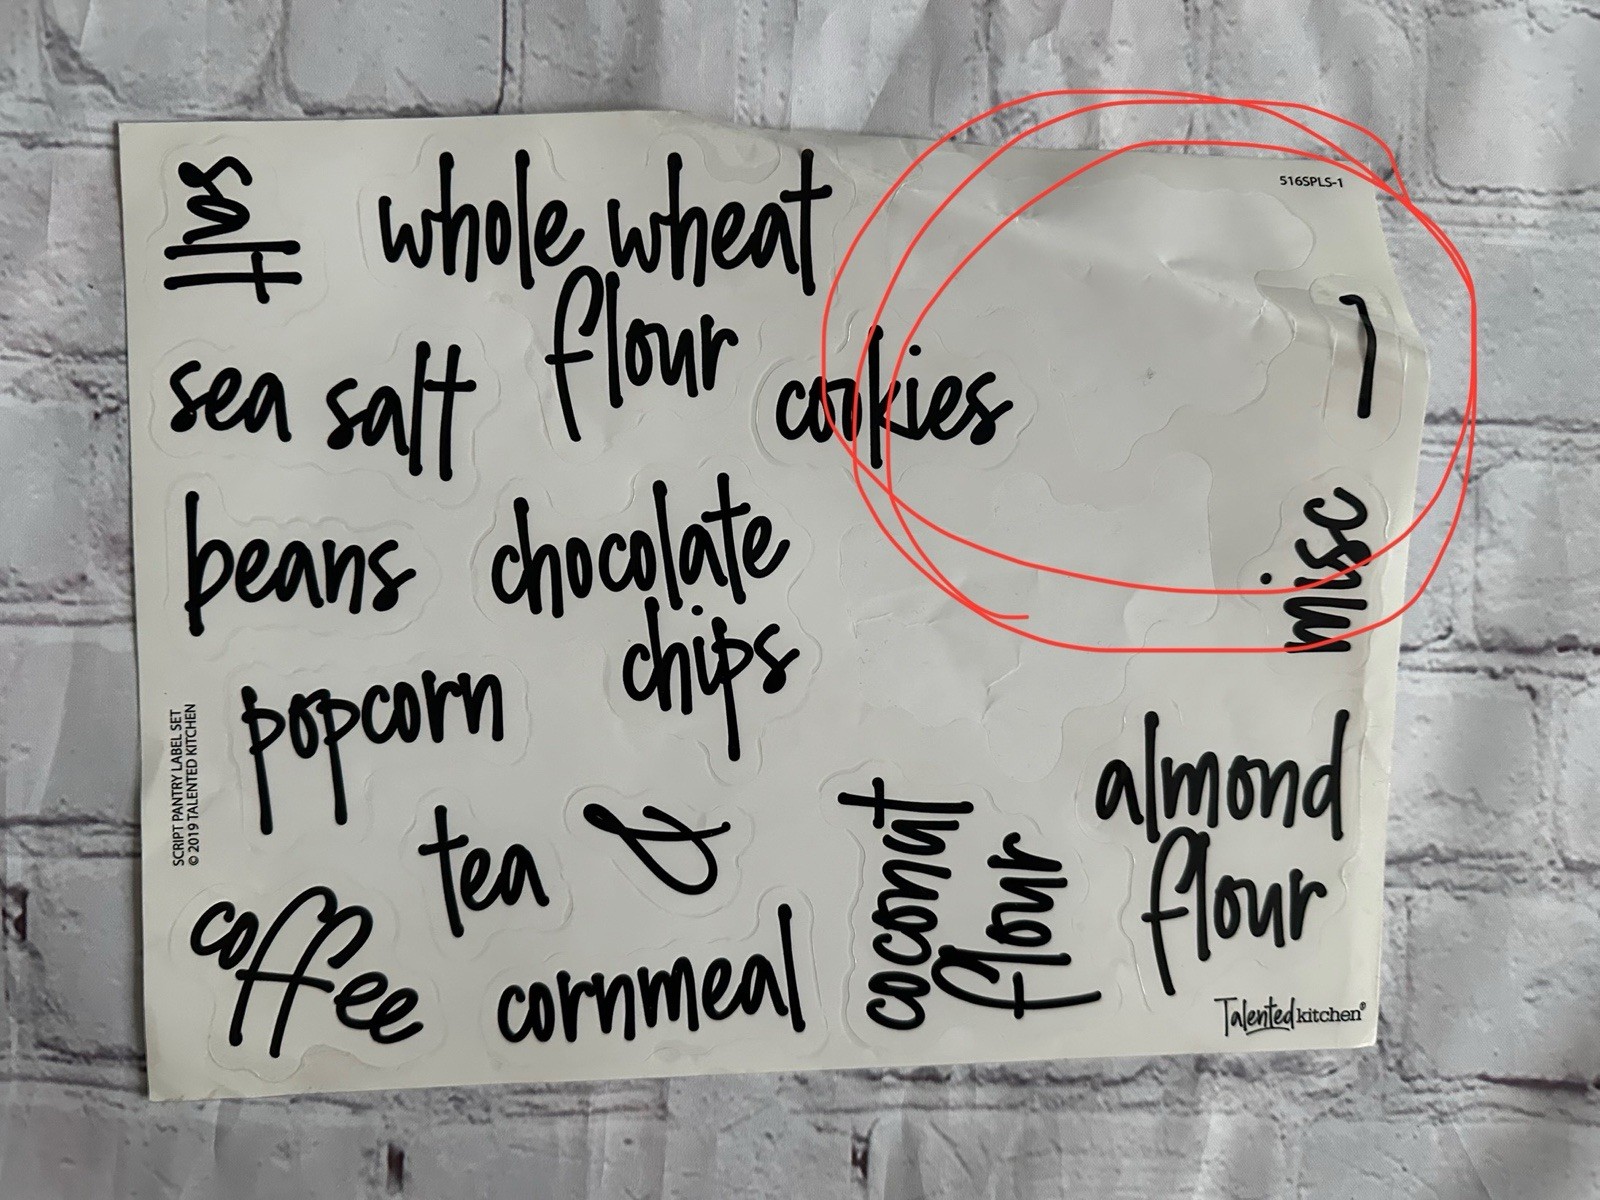 516SPLS-1
salt
whole wheat
flour
sea salt
cookies
beans
chocolate
chips
misc
popcorn
tea
&
coffee
cornmeal
coconut
flour
almond
flour
SCRIPT PANTRY LABEL SET
© 2019 TALENTED KITCHEN
Talented kitchen®